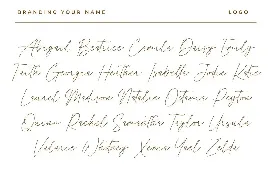 BRANDING YOUR NAME LOGO
Abigail Beatrice Camila Daisy Emily
Faith Georgia Heather Isabella Jodie Katie
Laurel Madison Natalie Octavia Peyton
Quinn Rachel Samantha Taylor Ursula
Valerie Whitney Xenia Yael Zelda